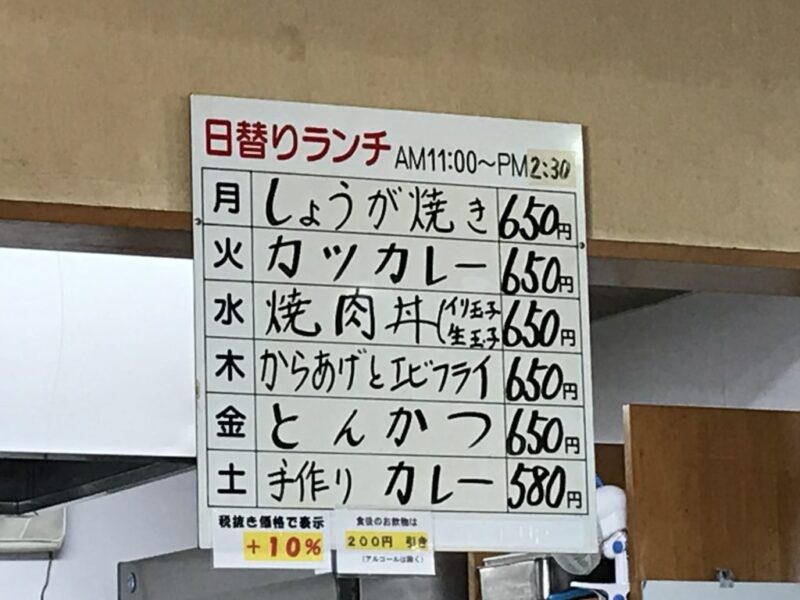 日替りランチ AM11:00～PM2:30
月 しょうが焼き 650円
火 カツカレー 650円
水 焼肉丼(イリ玉子 生玉子 650円
木 からあげとエビフライ 650円
金 とんかつ 650円
土 手作りカレー 580円
税抜き価格で表示
+10%
食後のお飲物は
200円 引き
(アルコールは除く)